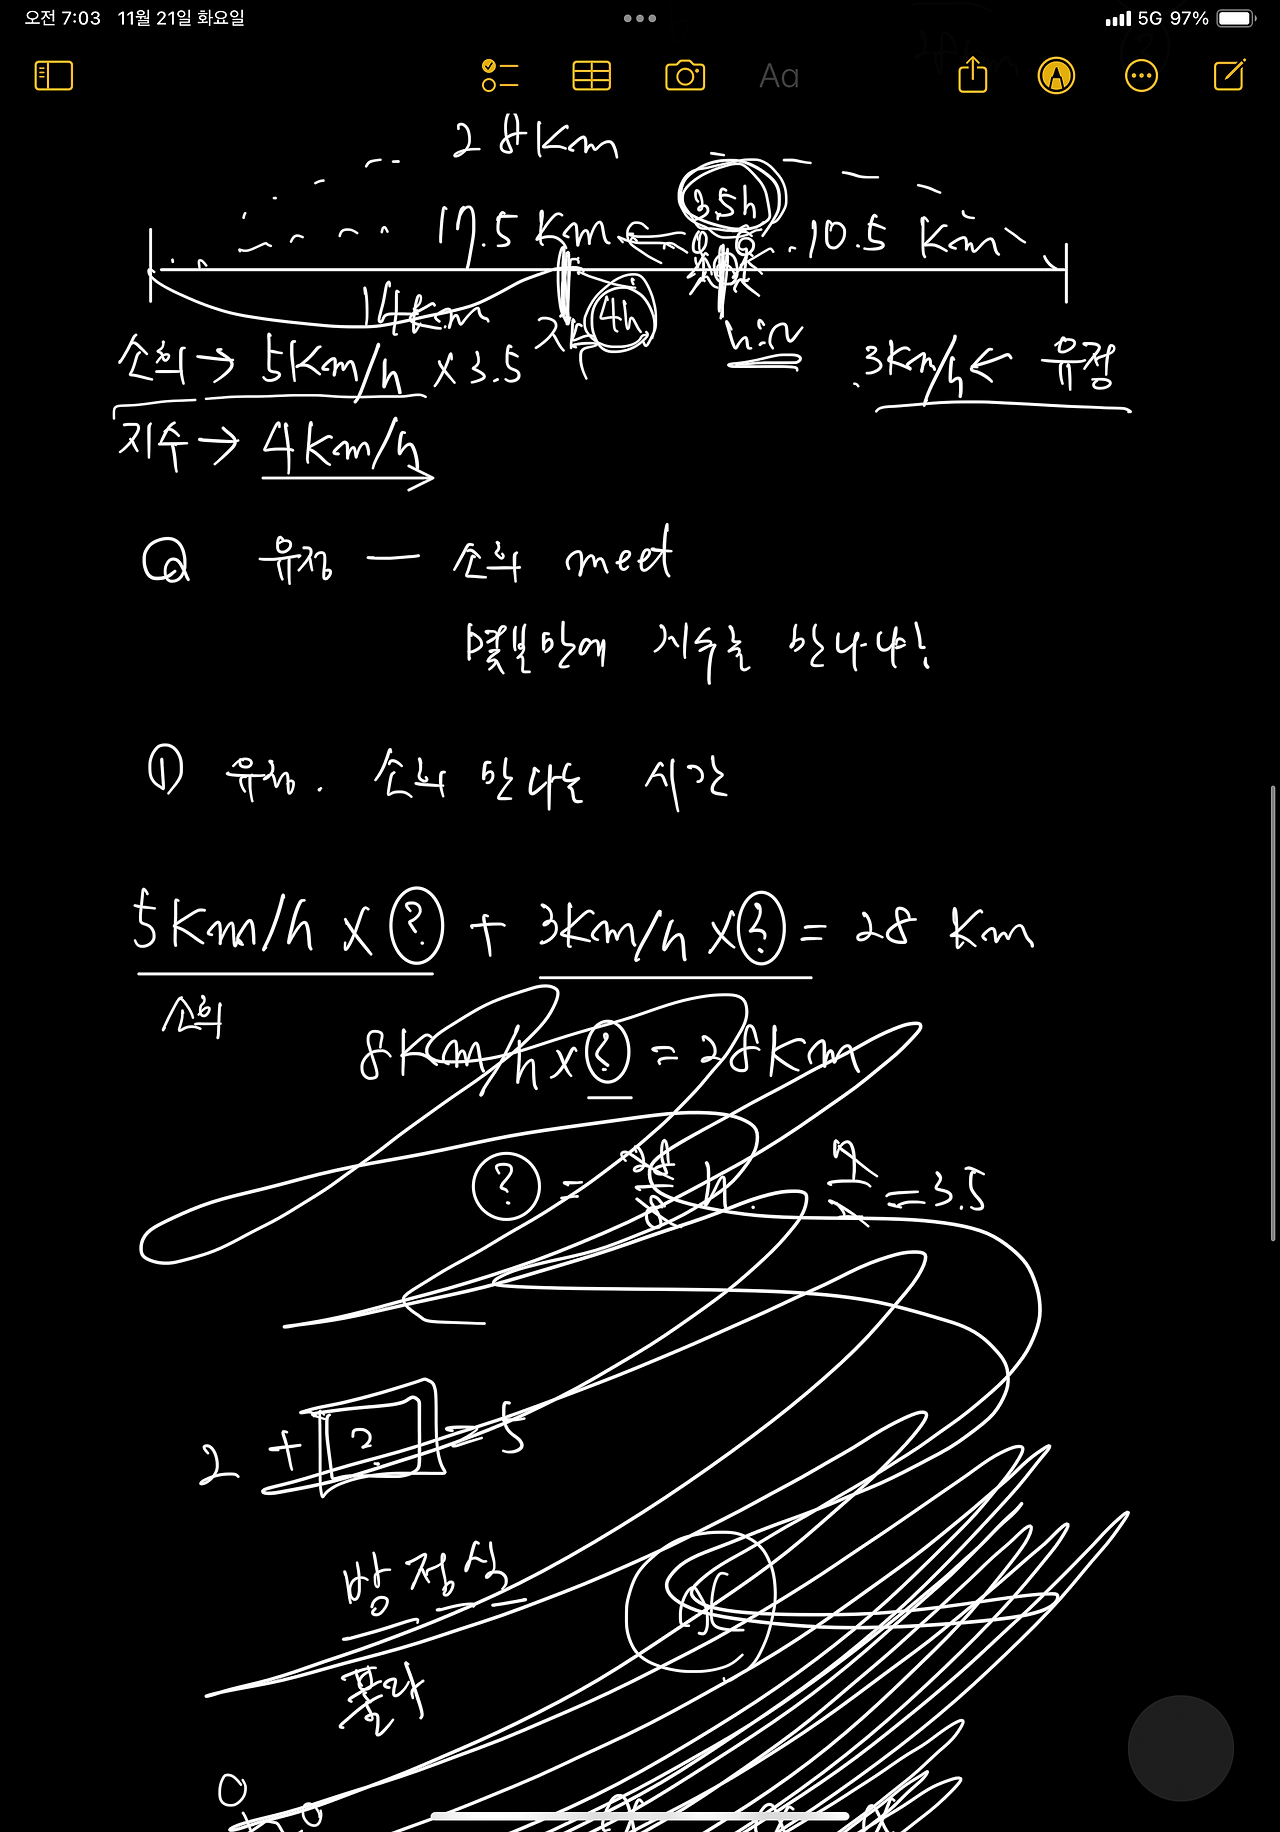 오전 7:03 11월 21일 화요일
5G 97%
Aa
28Km
3.5h
17.5 Km
10.5 Km
14Km
4h
소희→ 5Km/h x 3.5
3Km/h ← 유정
지수→ 4Km/h
Q 유정 — 소희 meet
몇분만에 지수를 만나냐!
① 유정. 소희 만나는 시간
5Km/h x ? + 3Km/h x ? = 28 Km
소희
8Km/h x ? = 28Km
? = 28/8 h. 7/2 = 3.5
2 + ? = 5
방정식
풀라
x